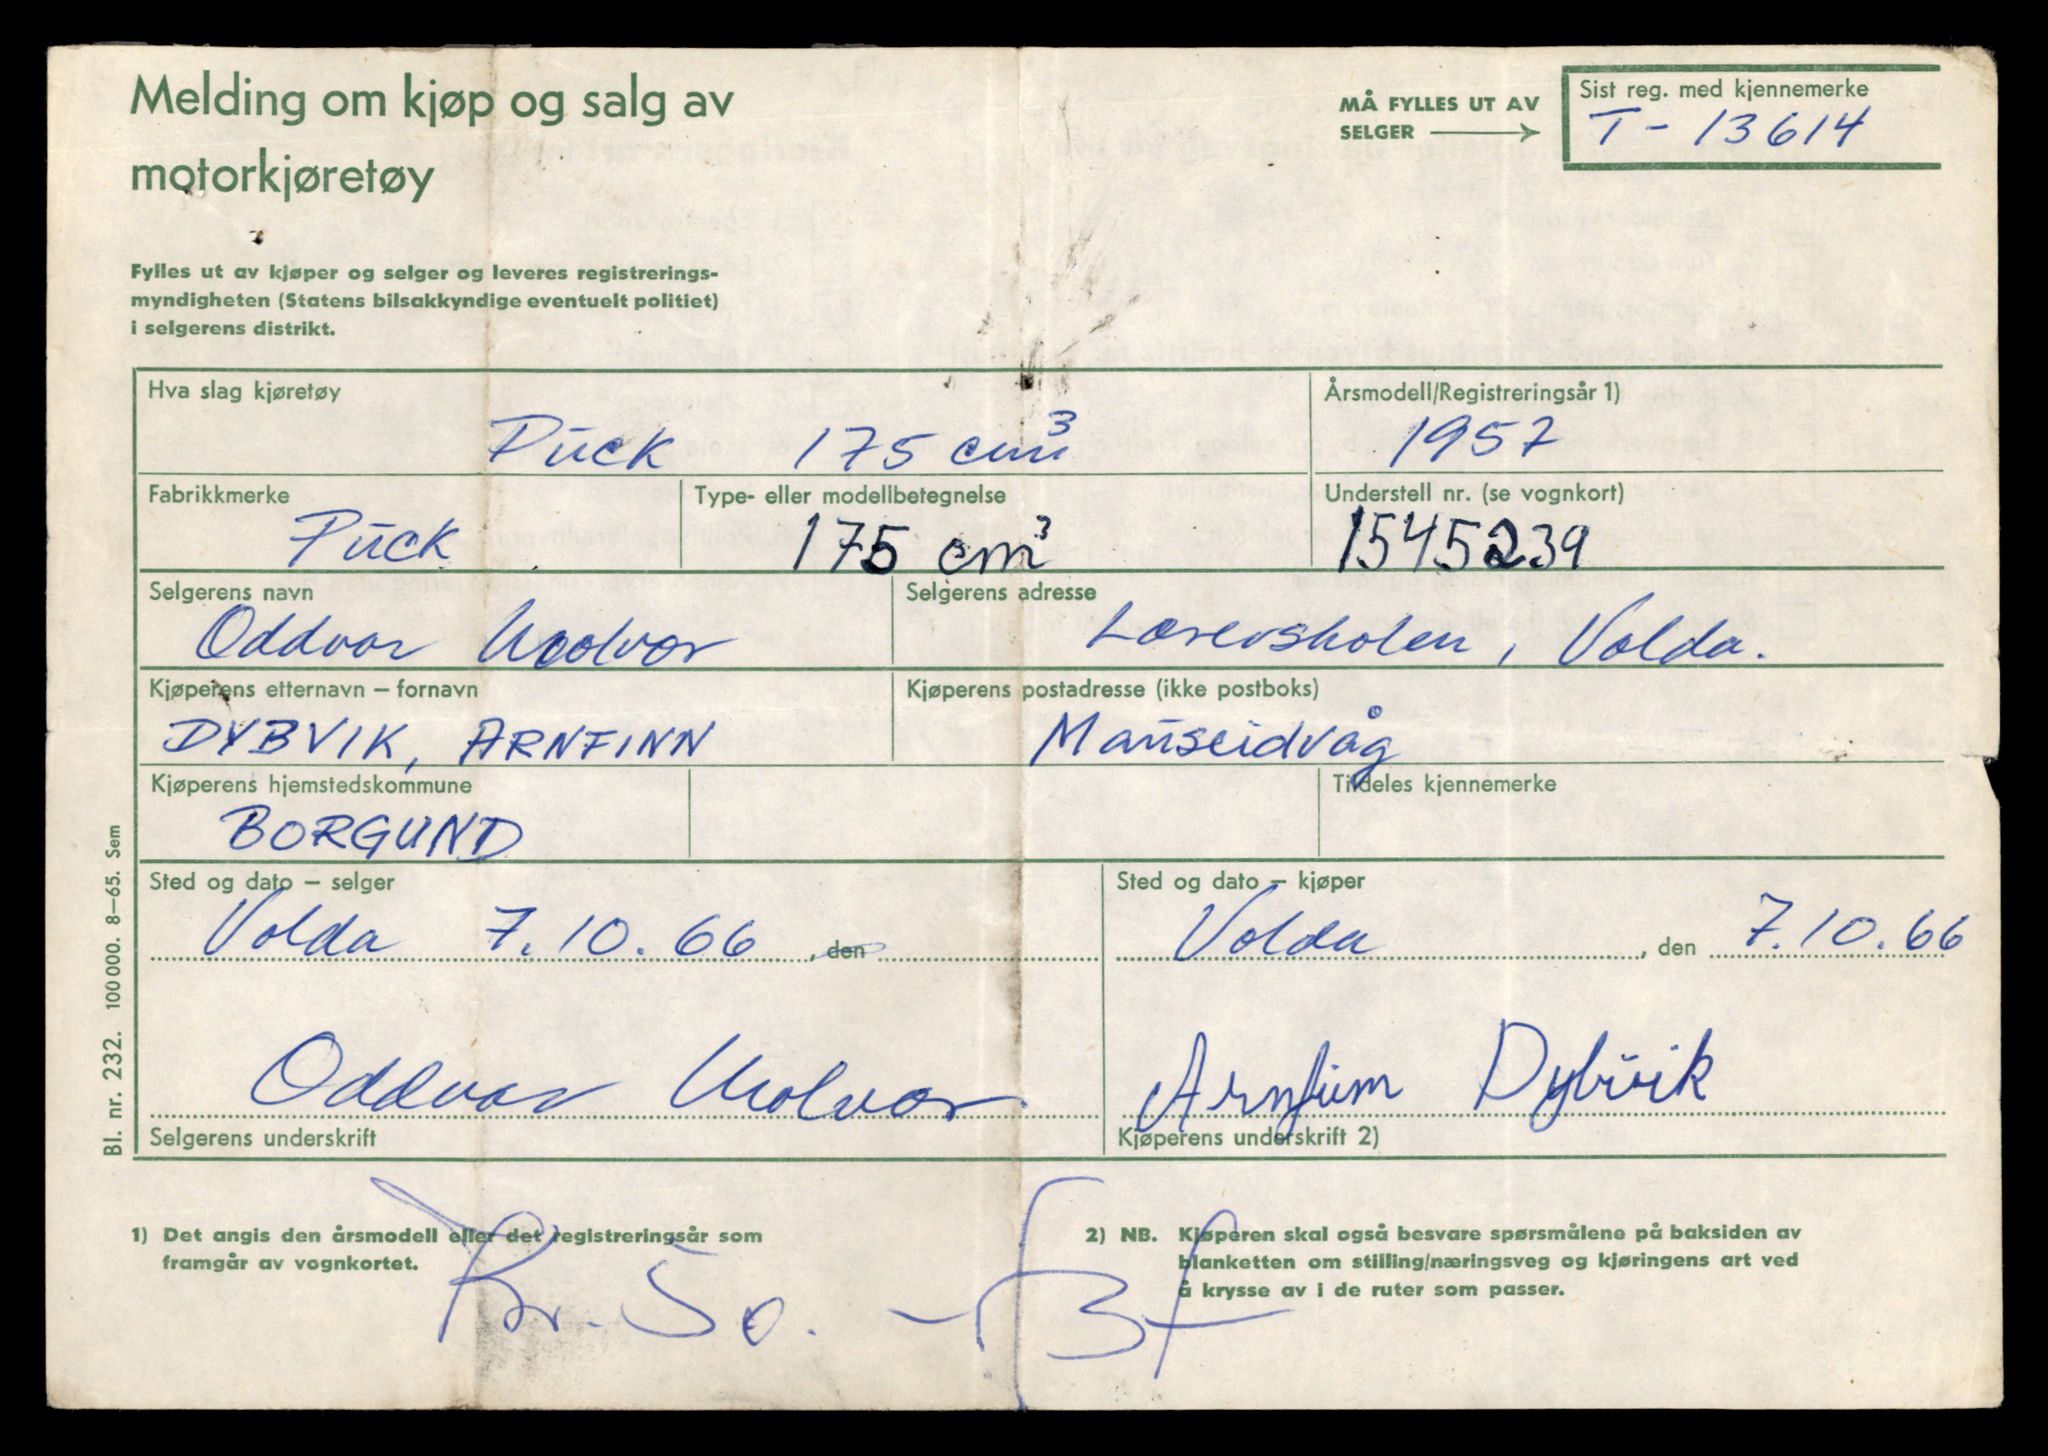 Melding om kjøp og salg av
motorkjøretøy
MÅ FYLLES UT AV
SELGER
Sist reg. med kjennemerke
T - 13614
Fylles ut av kjøper og selger og leveres registrerings-
myndigheten (Statens bilsakkyndige eventuelt politiet)
i selgerens distrikt.
Hva slag kjøretøy
Puck 175 cm³
Årsmodell/Registreringsår 1)
1957
Fabrikkmerke
Puck
Type- eller modellbetegnelse
175 cm³
Understell nr. (se vognkort)
1545239
Selgerens navn
Oddvar Molvær
Selgerens adresse
Lærerskolen, Volda.
Kjøperens etternavn – fornavn
DYBVIK, ARNFINN
Kjøperens postadresse (ikke postboks)
Mauseidvåg
Kjøperens hjemstedskommune
BORGUND
Tildeles kjennemerke
Sted og dato – selger
Volda 7.10.66, den
Sted og dato – kjøper
Volda, den 7.10.66
Oddvar Molvær
Selgerens underskrift
Arnfinn Dybvik
Kjøperens underskrift 2)
Bl. nr. 232. 100 000. 8–65. Sem
1) Det angis den årsmodell eller det registreringsår som
framgår av vognkortet.
2) NB. Kjøperen skal også besvare spørsmålene på baksiden av
blanketten om stilling/næringsveg og kjøringens art ved
å krysse av i de ruter som passer.
Kr. 50. -